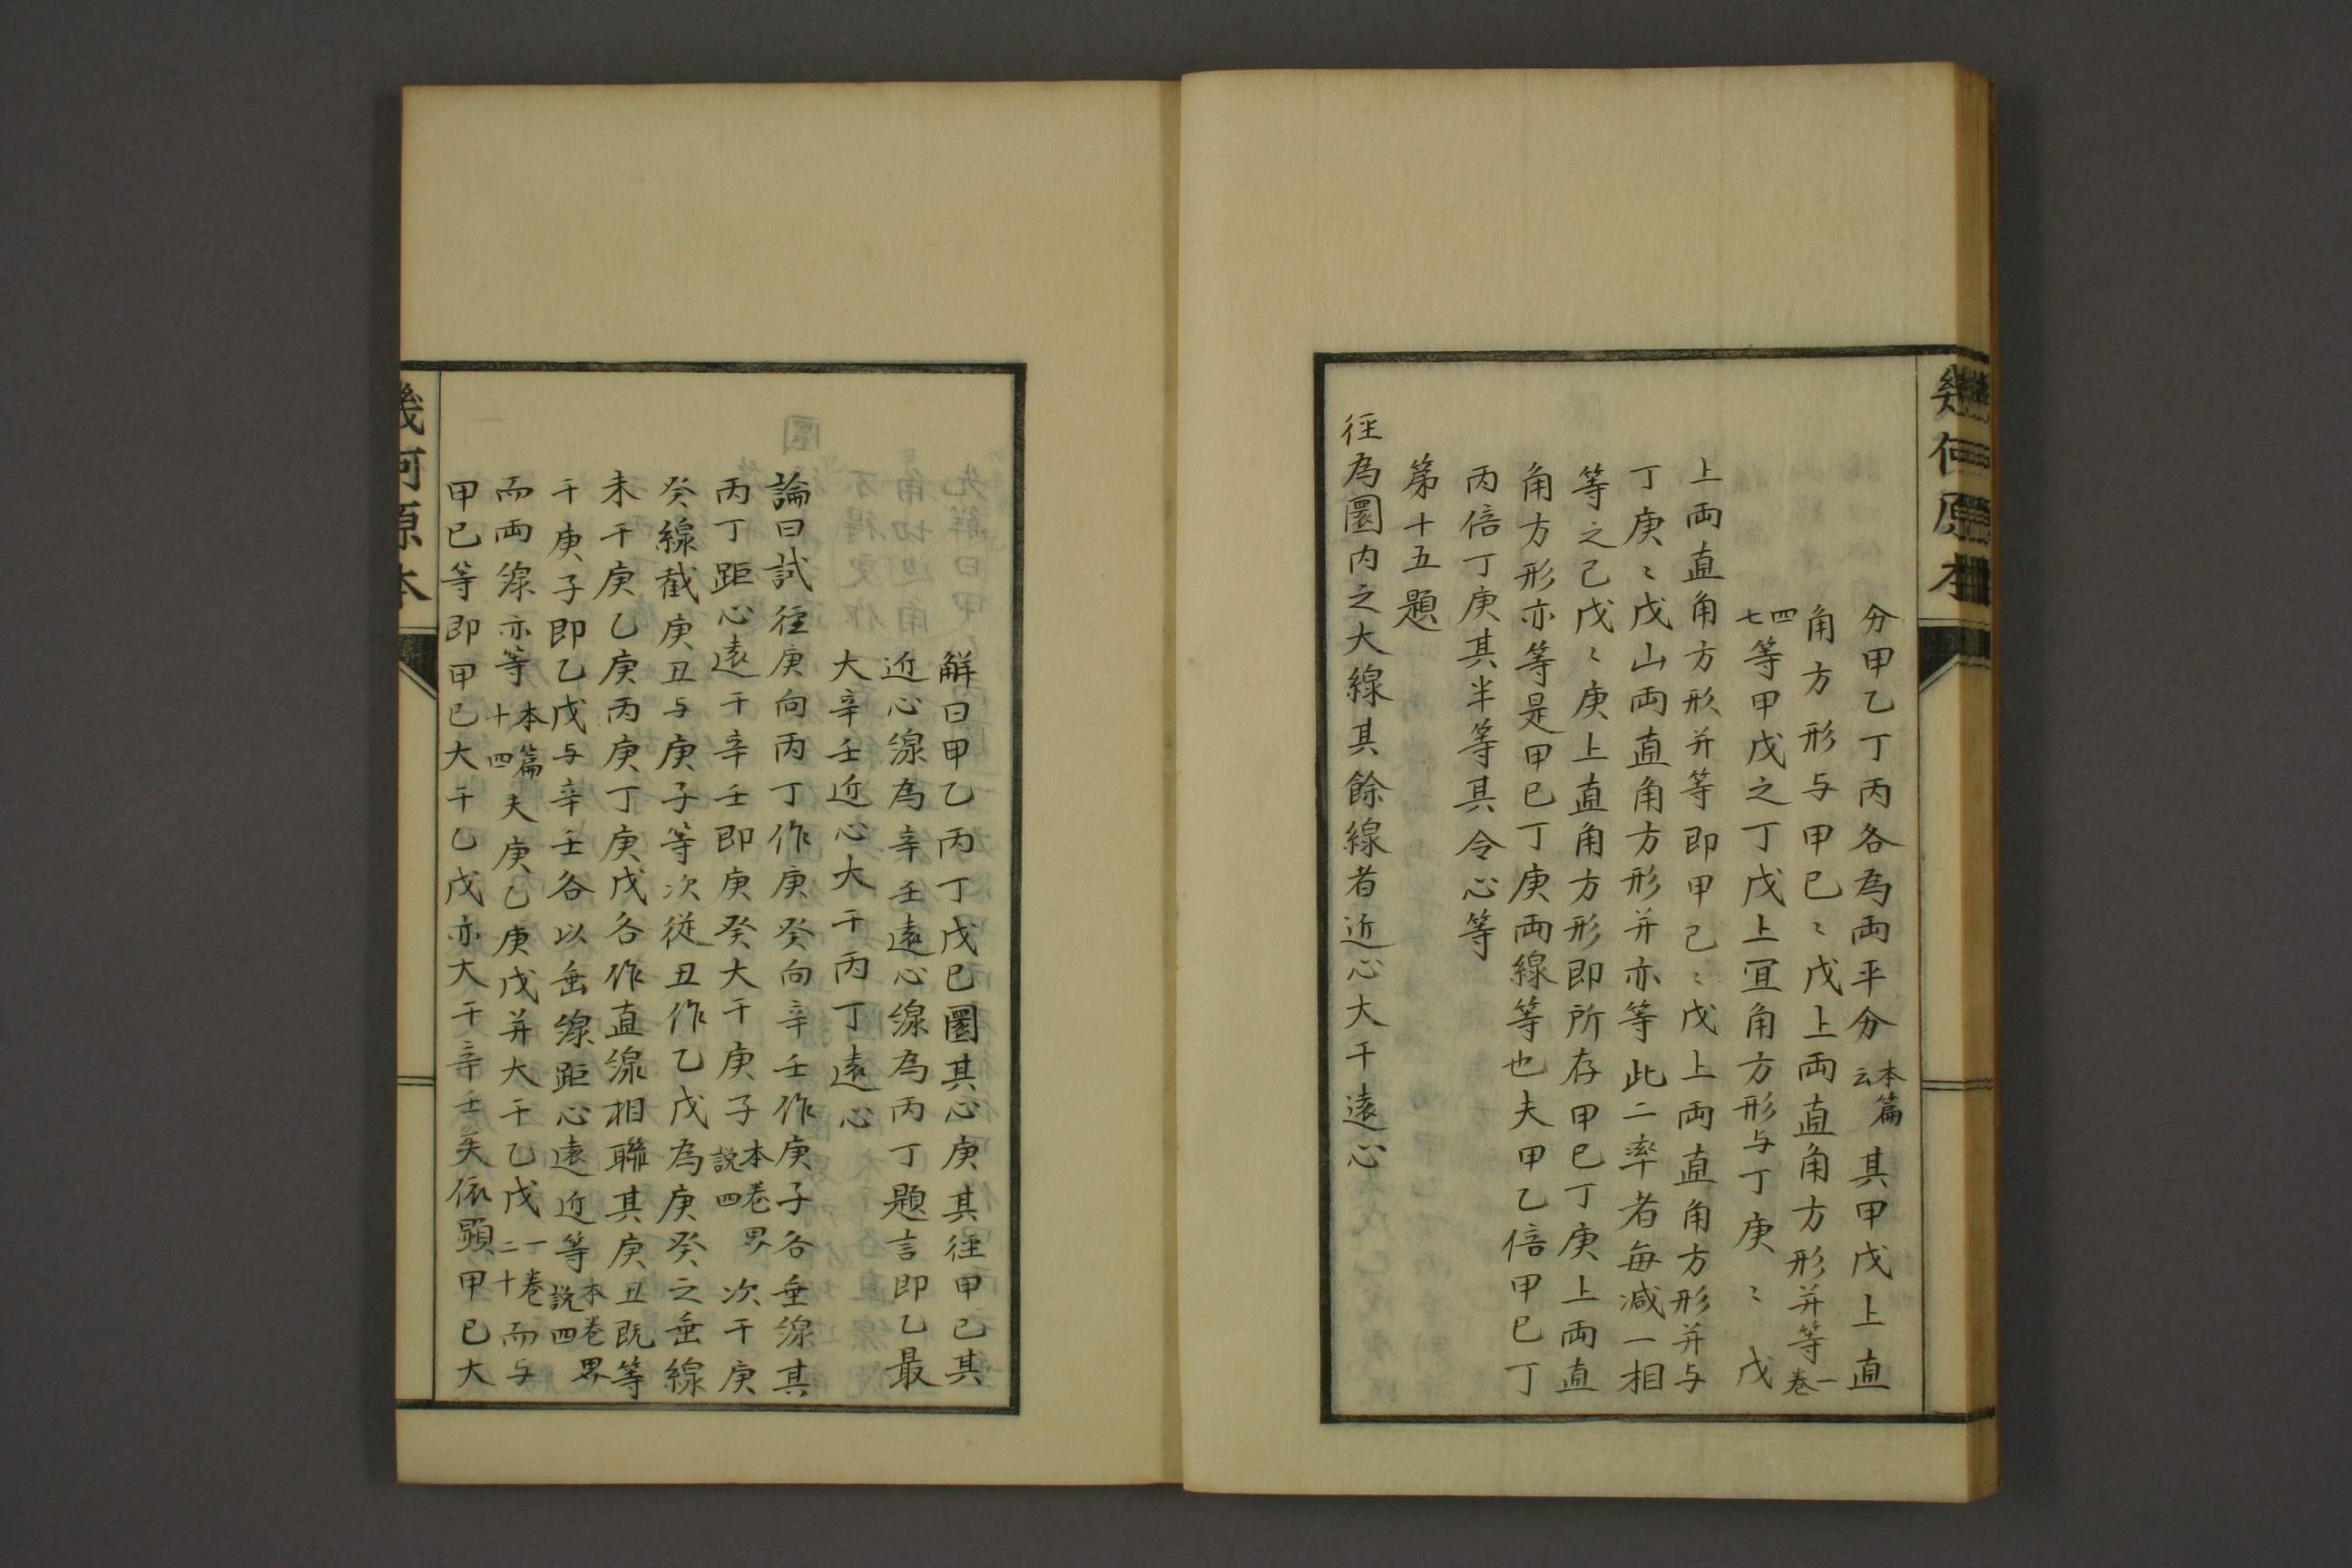 幾何原本
分甲乙丁丙各為両平分本篇云其甲戊上直
角方形与甲巳〻戊上両直角方形并等一卷
四七等甲戊之丁戊上冝角方形与丁庚〻戊
上両直角方形并等即甲己〻戊上両直角方形并与
丁庚〻戊山両直角方形并亦等此二率者每减一相
等之己戊〻庚上直角方形即所存甲巳丁庚上両直
角方形亦等是甲巳丁庚両線等也夫甲乙倍甲巳丁
丙倍丁庚其半等其令心等
第十五題
径為圜内之大線其餘線者近心大于遠心
解曰甲乙丙丁戊巳圜其心庚其径甲己其
近心線為辛壬遠心線為丙丁題言即乙最
大辛壬近心大于丙丁遠心
論曰試径庚向丙丁作庚癸向辛壬作庚子各垂線其
丙丁距心遠于辛壬即庚癸大于庚子本卷界說四次于庚
癸線截庚丑与庚子等次従丑作乙戊為庚癸之垂線
未于庚乙庚丙庚丁庚戊各作直線相聯其庚丑既等
于庚子即乙戊与辛壬各以垂線距心遠近等本卷界說四
而両線亦等本篇十四夫庚乙庚戊并大于乙戊一卷二十而与
甲巳等即甲巳大于乙戊亦大于辛壬矣依顕甲巳大
幾何原本